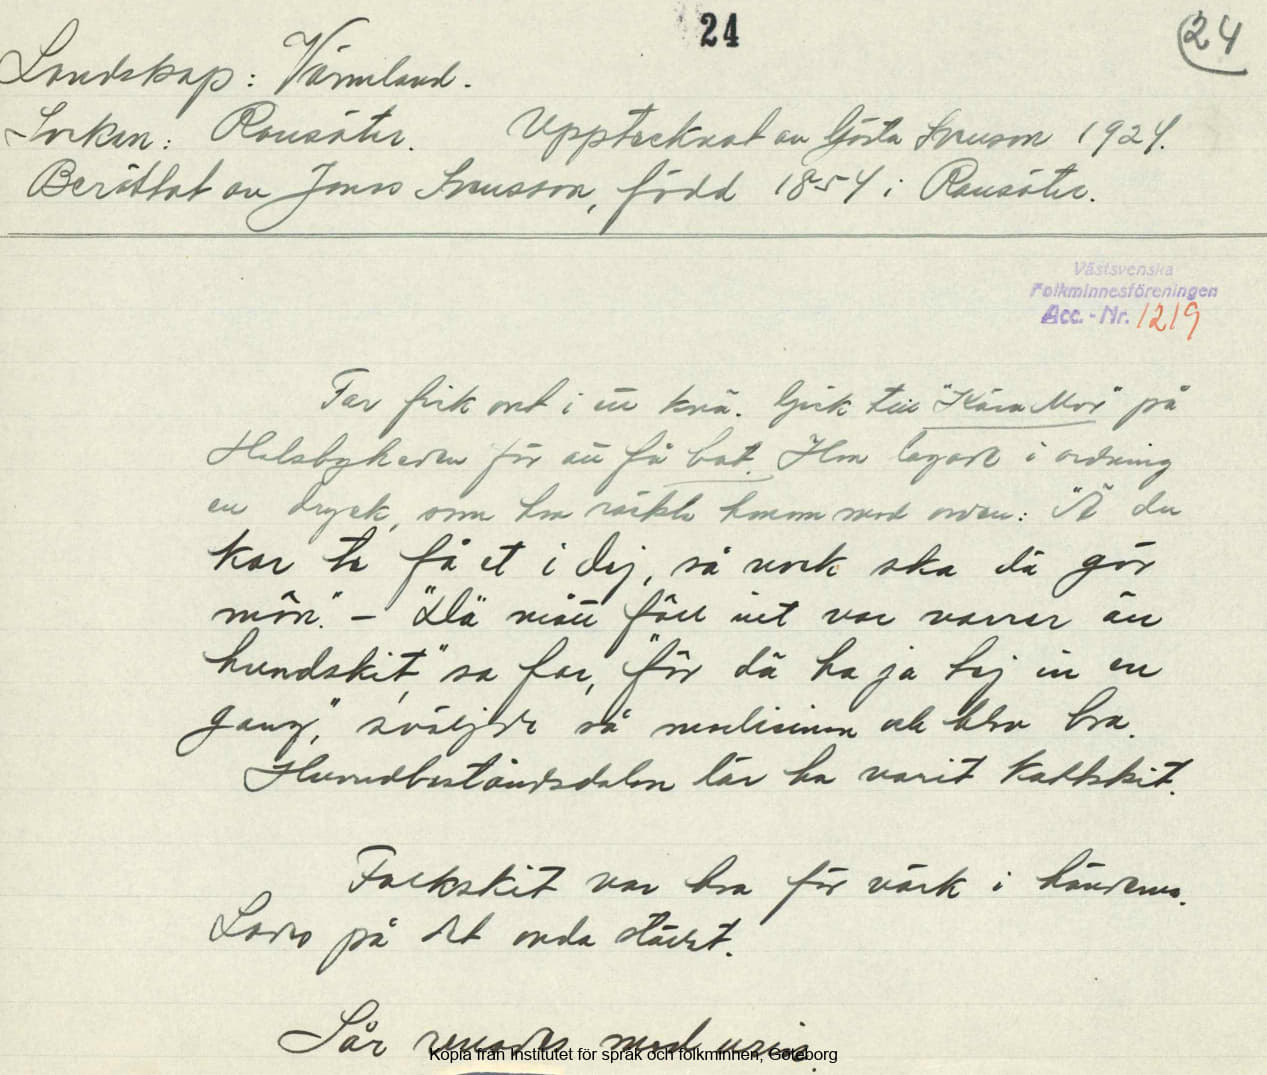 24
24
Landskap: Värmland.
Socken: Ransäter. Upptecknat av Gösta Svenson 1924.
Berättat av Jonas Svensson, född 1854 i Ransäter.
Västsvenska
Folkminnesföreningen
Acc. - Nr. 1219
Far fick ont i ett knä. Gick till "Kära Mor" på
Helsbyheden för att få bot. Hon lagade i ordning
en dryck, som hon räckte honom med orden: "Ä du
kar te få et i dej, så nock ska dä gör
môn." – "Dä mått fôll int var varrer än
hundskit," sa far, "för dä ha ja hej in en
gang," sväljde så medicinen och blev bra.
Huvudbeståndsdelen lär ha varit kattskit.
Folkskit var bra för värk i händerna.
Lades på det onda stället.
Sår renades med urin.
Kopia från Institutet för språk och folkminnen, Göteborg